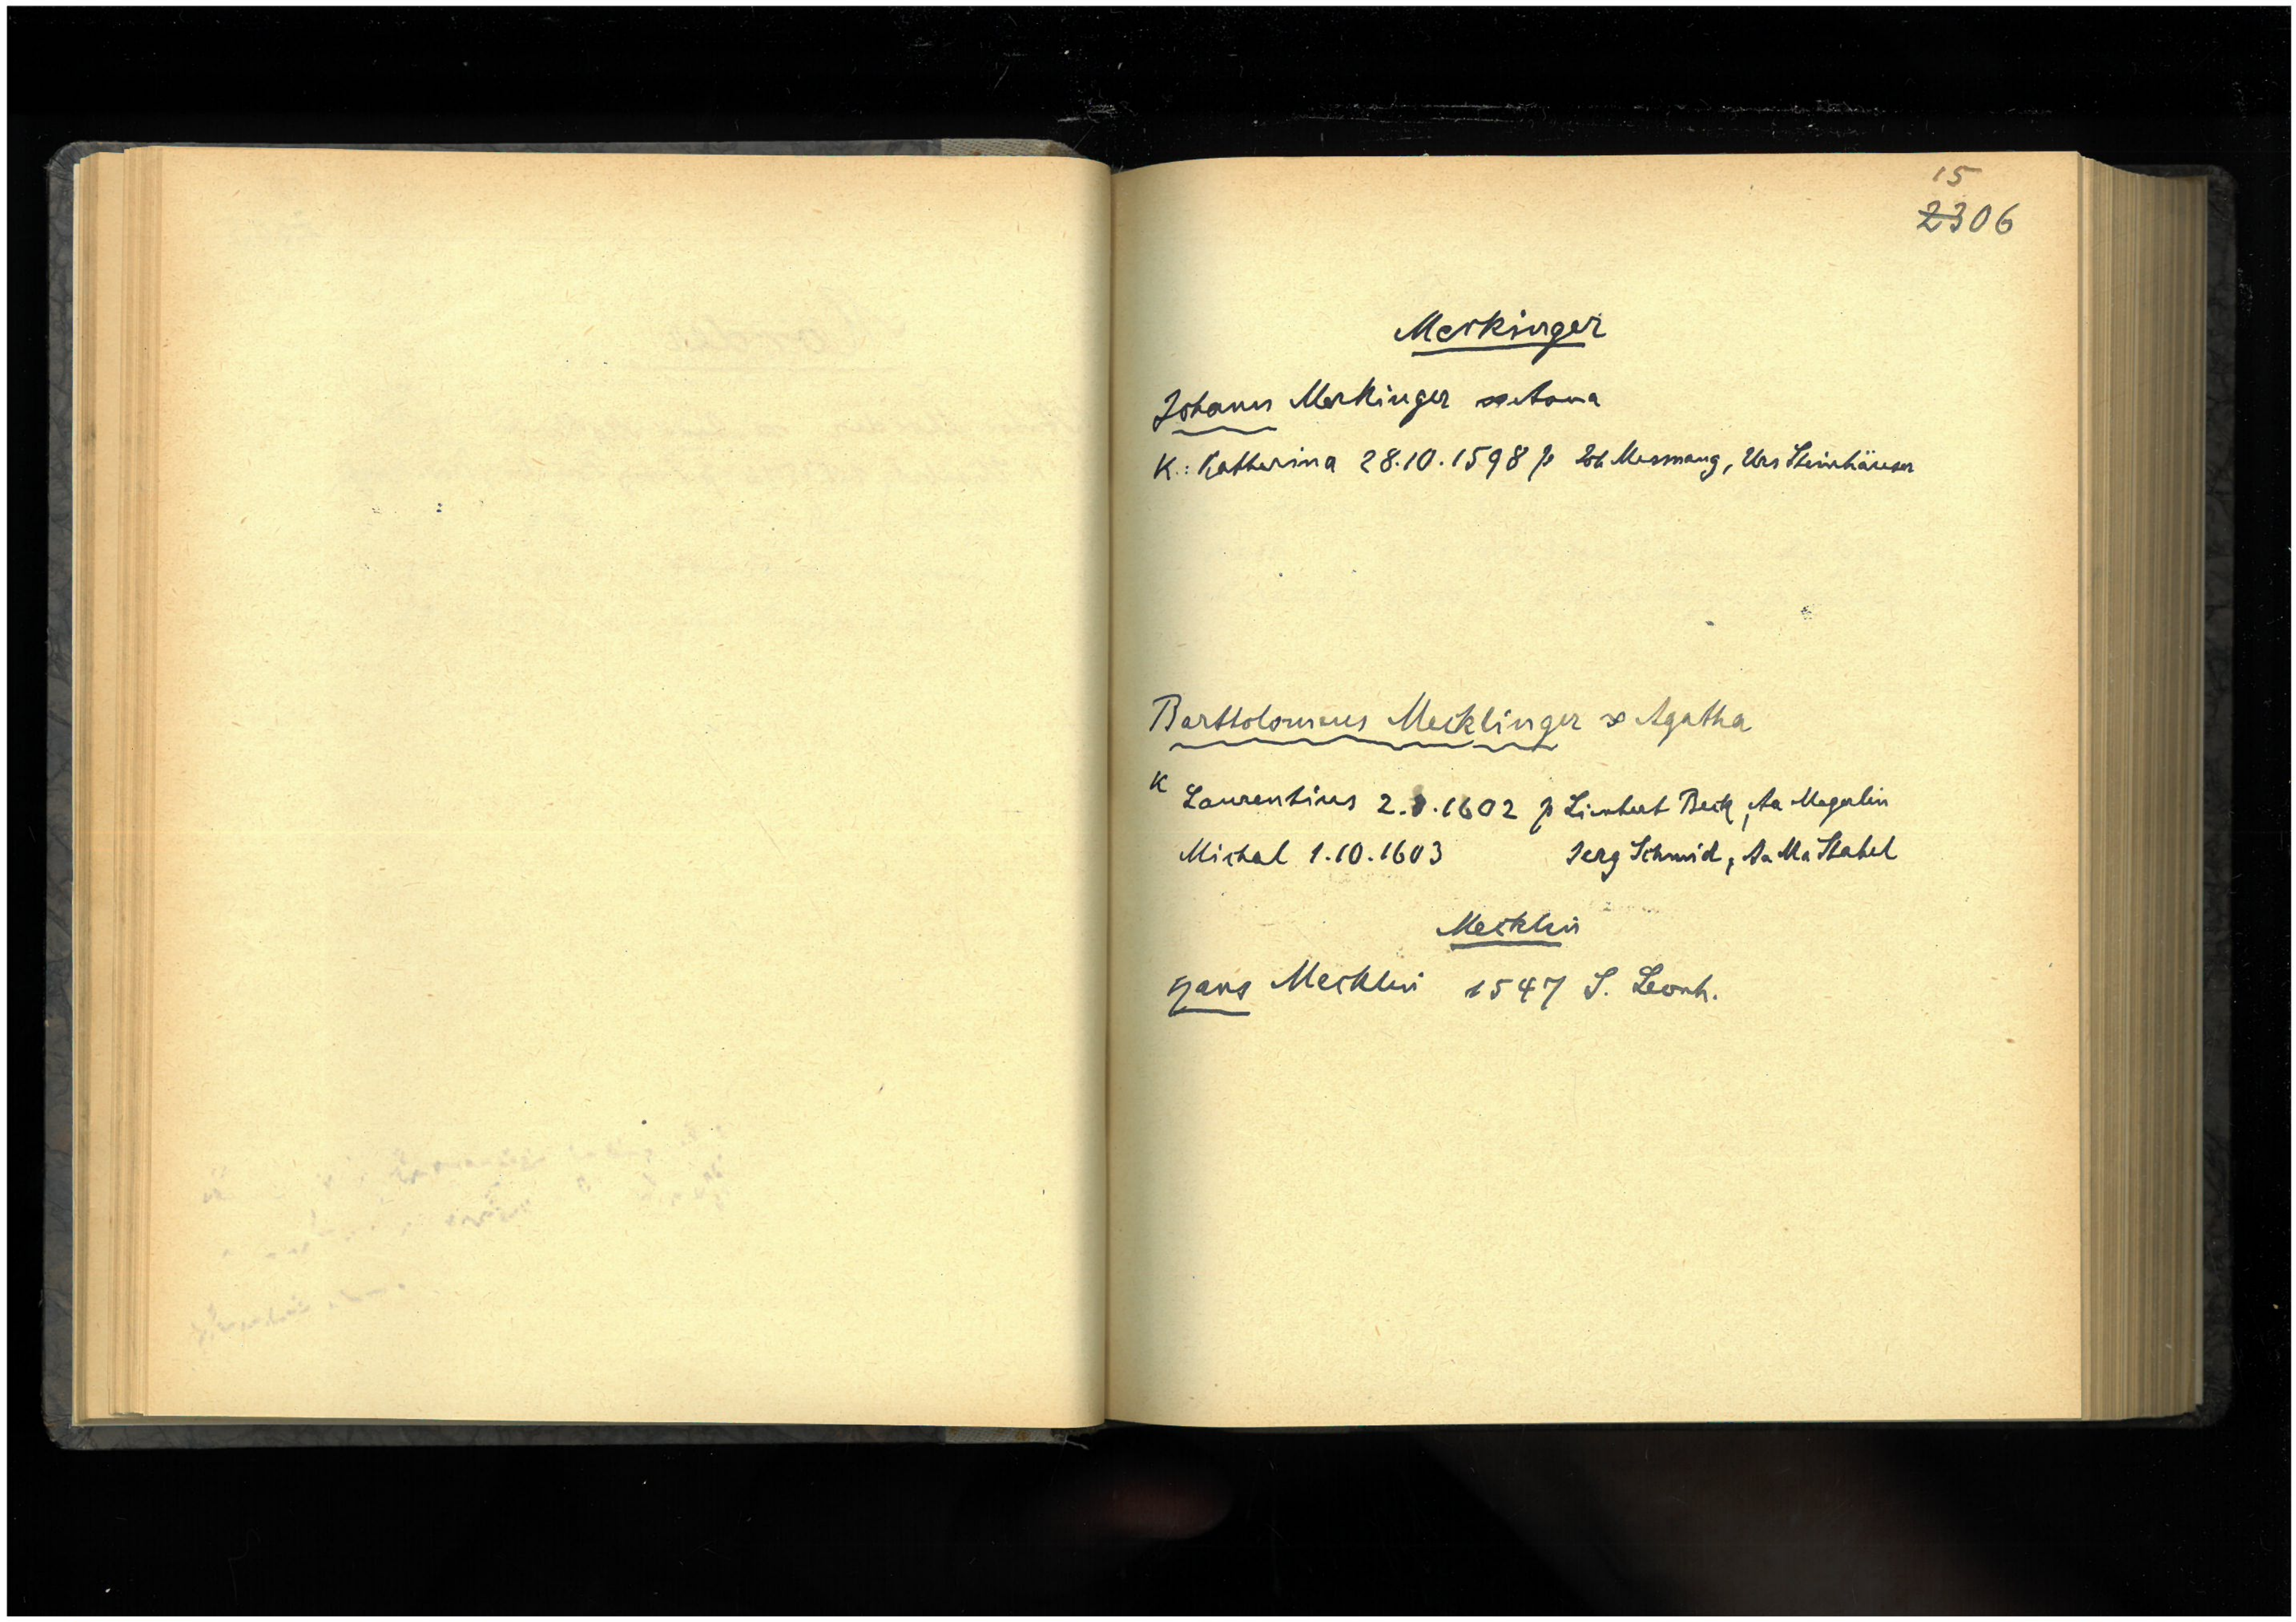 15
2306
Meckinger
Johann Meckinger ∞ Anna
K.: Katharina 28.10.1598 p Joh Messmang, Urs Steinhäuser
Bartholomeus Mecklinger ∞ Agatha
K Laurentius 2.8.1602 p Limbert Beck, Aa Megerlin
Michal 1.10.1603 Jerg Schmid, Aa Ma Stabel
Mecklin
Hans Mecklin 1547 S. Leonh.